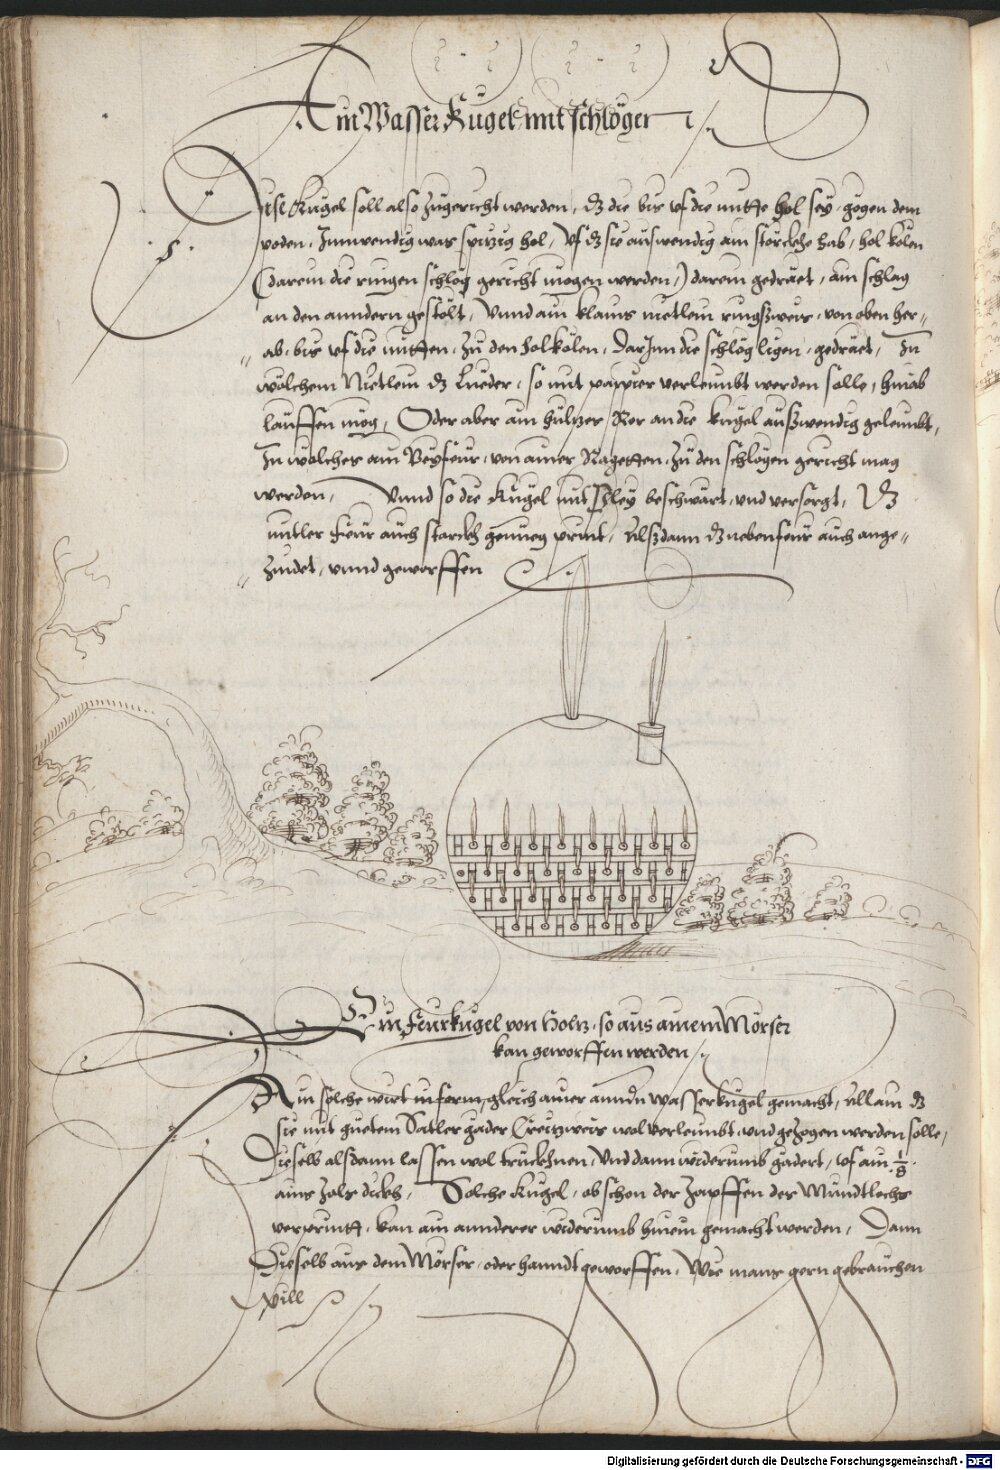 Ain Wasser Kugel mit schlöger
Dise Kugel soll also zugericht werden, dz die bis uf die mitte hol sey, gögen dem
poden, Innwendig war spitzig hol, Uf dz sie auswendig ain störckhe hab, hol kolen
(darein die ringen schlög gericht mögen werden,) darein gedräet, ain schlag
an den anndern gestölt, Unnd ain klains nietlein ringszweis, von oben her-
ab, bis uf die mitten, zu den holkolen, Darjnn die schlög ligen, gedräet, In
wölchem Nietlein dz Lueder, so mit pappier verleimbt werden solle, hinab
lauffen mög, Oder aber ain hültzer Rer an die kugel außwendig geleimbt,
In wölcher ain Beyfeur, von ainer Ragetten, zu den schlögen gericht mag
werden, Unnd so die Kugel mit Pley beschwärt, und versorgt, Dz
mitler feur auch starckh genueg print, Alßdann dz nebenfeur auch ange-
zindet, unnd geworffen
Ein Feurkugel von Holtz, so aus ainem Mörser
kan geworffen werden
Ain solche wirt inform, gleich ainer anndn wasserkugel gemacht, Allain dz
sie mit guetem Satler gader Creitzweis wol verleimbt, und gezogen werden solle,
Dieselb alsdann lassen wol truckhnen, Und dann widerumb gadert, uf ain 1/8
ains zols dickh, Solche kugel, ob schon der Zapffen der Mundtlochs
verprintt, kan ain annderer widerumb hinein gemacht werden, Dann
Dieselb aus dem Mörser, oder hanndt geworffen, Wie mans gern gebrauchen
will
Digitalisierung gefördert durch die Deutsche Forschungsgemeinschaft - DFG